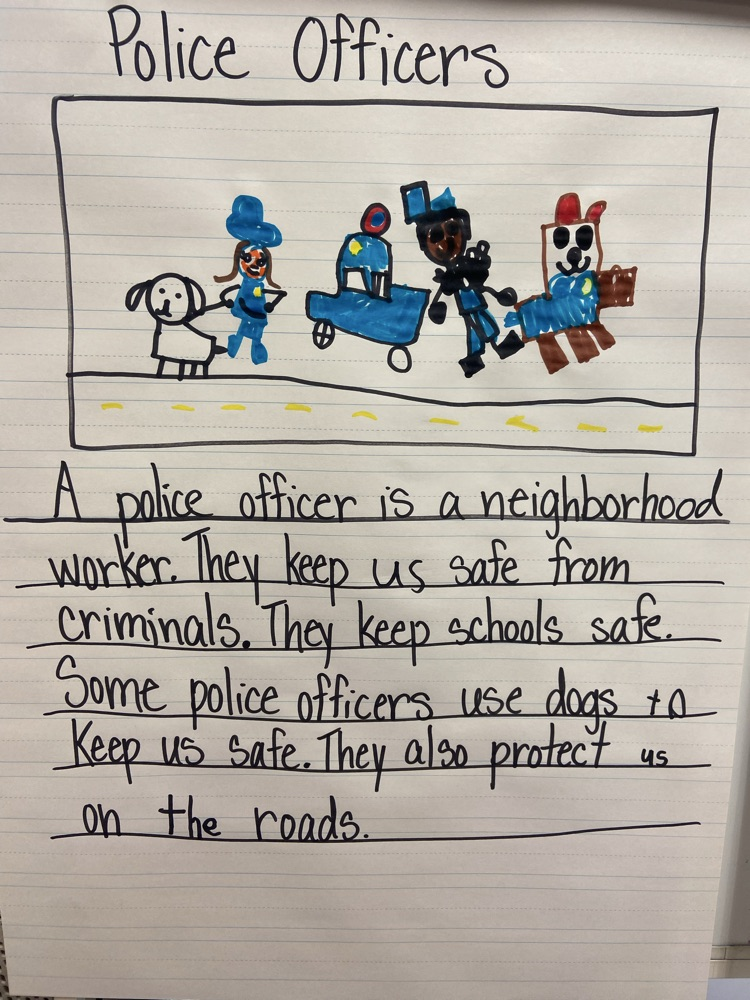 Police Officers
A police officer is a neighborhood
worker. They keep us safe from
criminals. They keep schools safe.
Some police officers use dogs to
Keep us safe. They also protect us
on the roads.